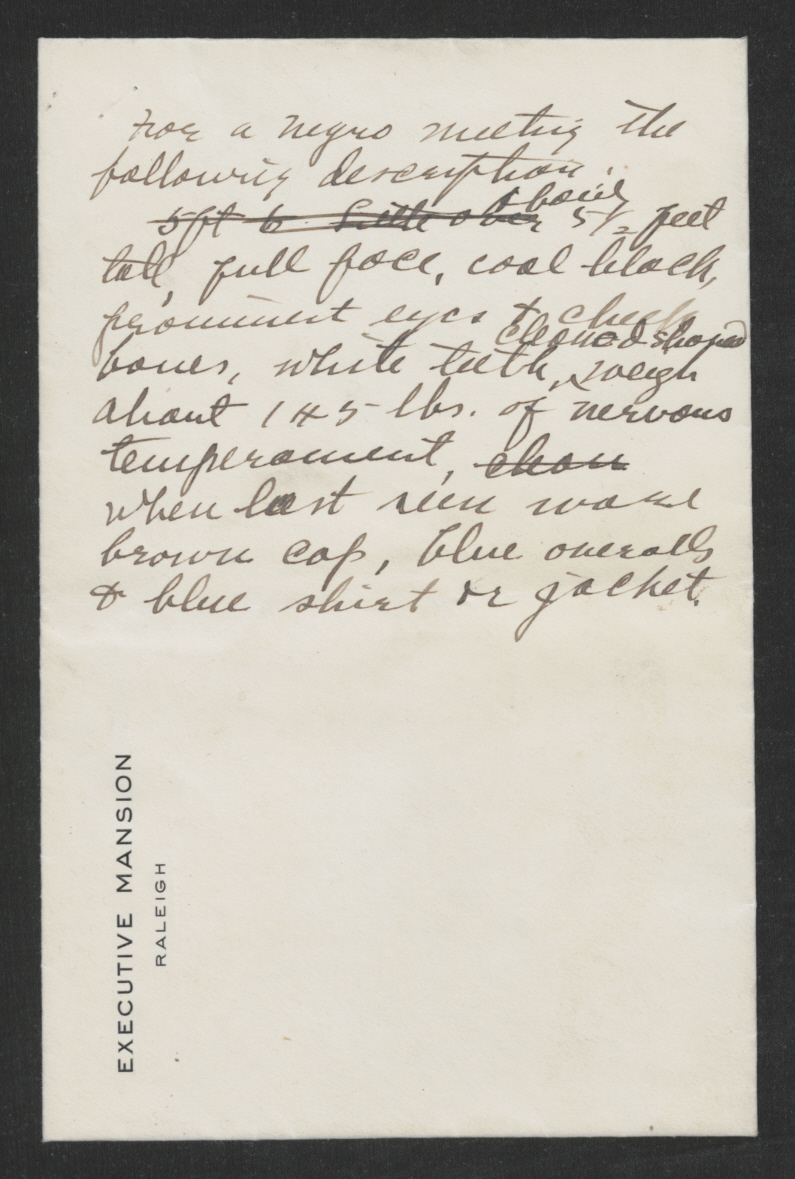 For a negro meeting the
following description.
5 ft 6 little over about 5 1/2 feet
tall, full face, coal black,
prominent eyes & cheek
bones, white teeth, clean & shaped weigh
about 145 lbs. of nervous
temperament,
when last seen wore
brown cap, blue overalls
& blue shirt or jacket.
EXECUTIVE MANSION
RALEIGH